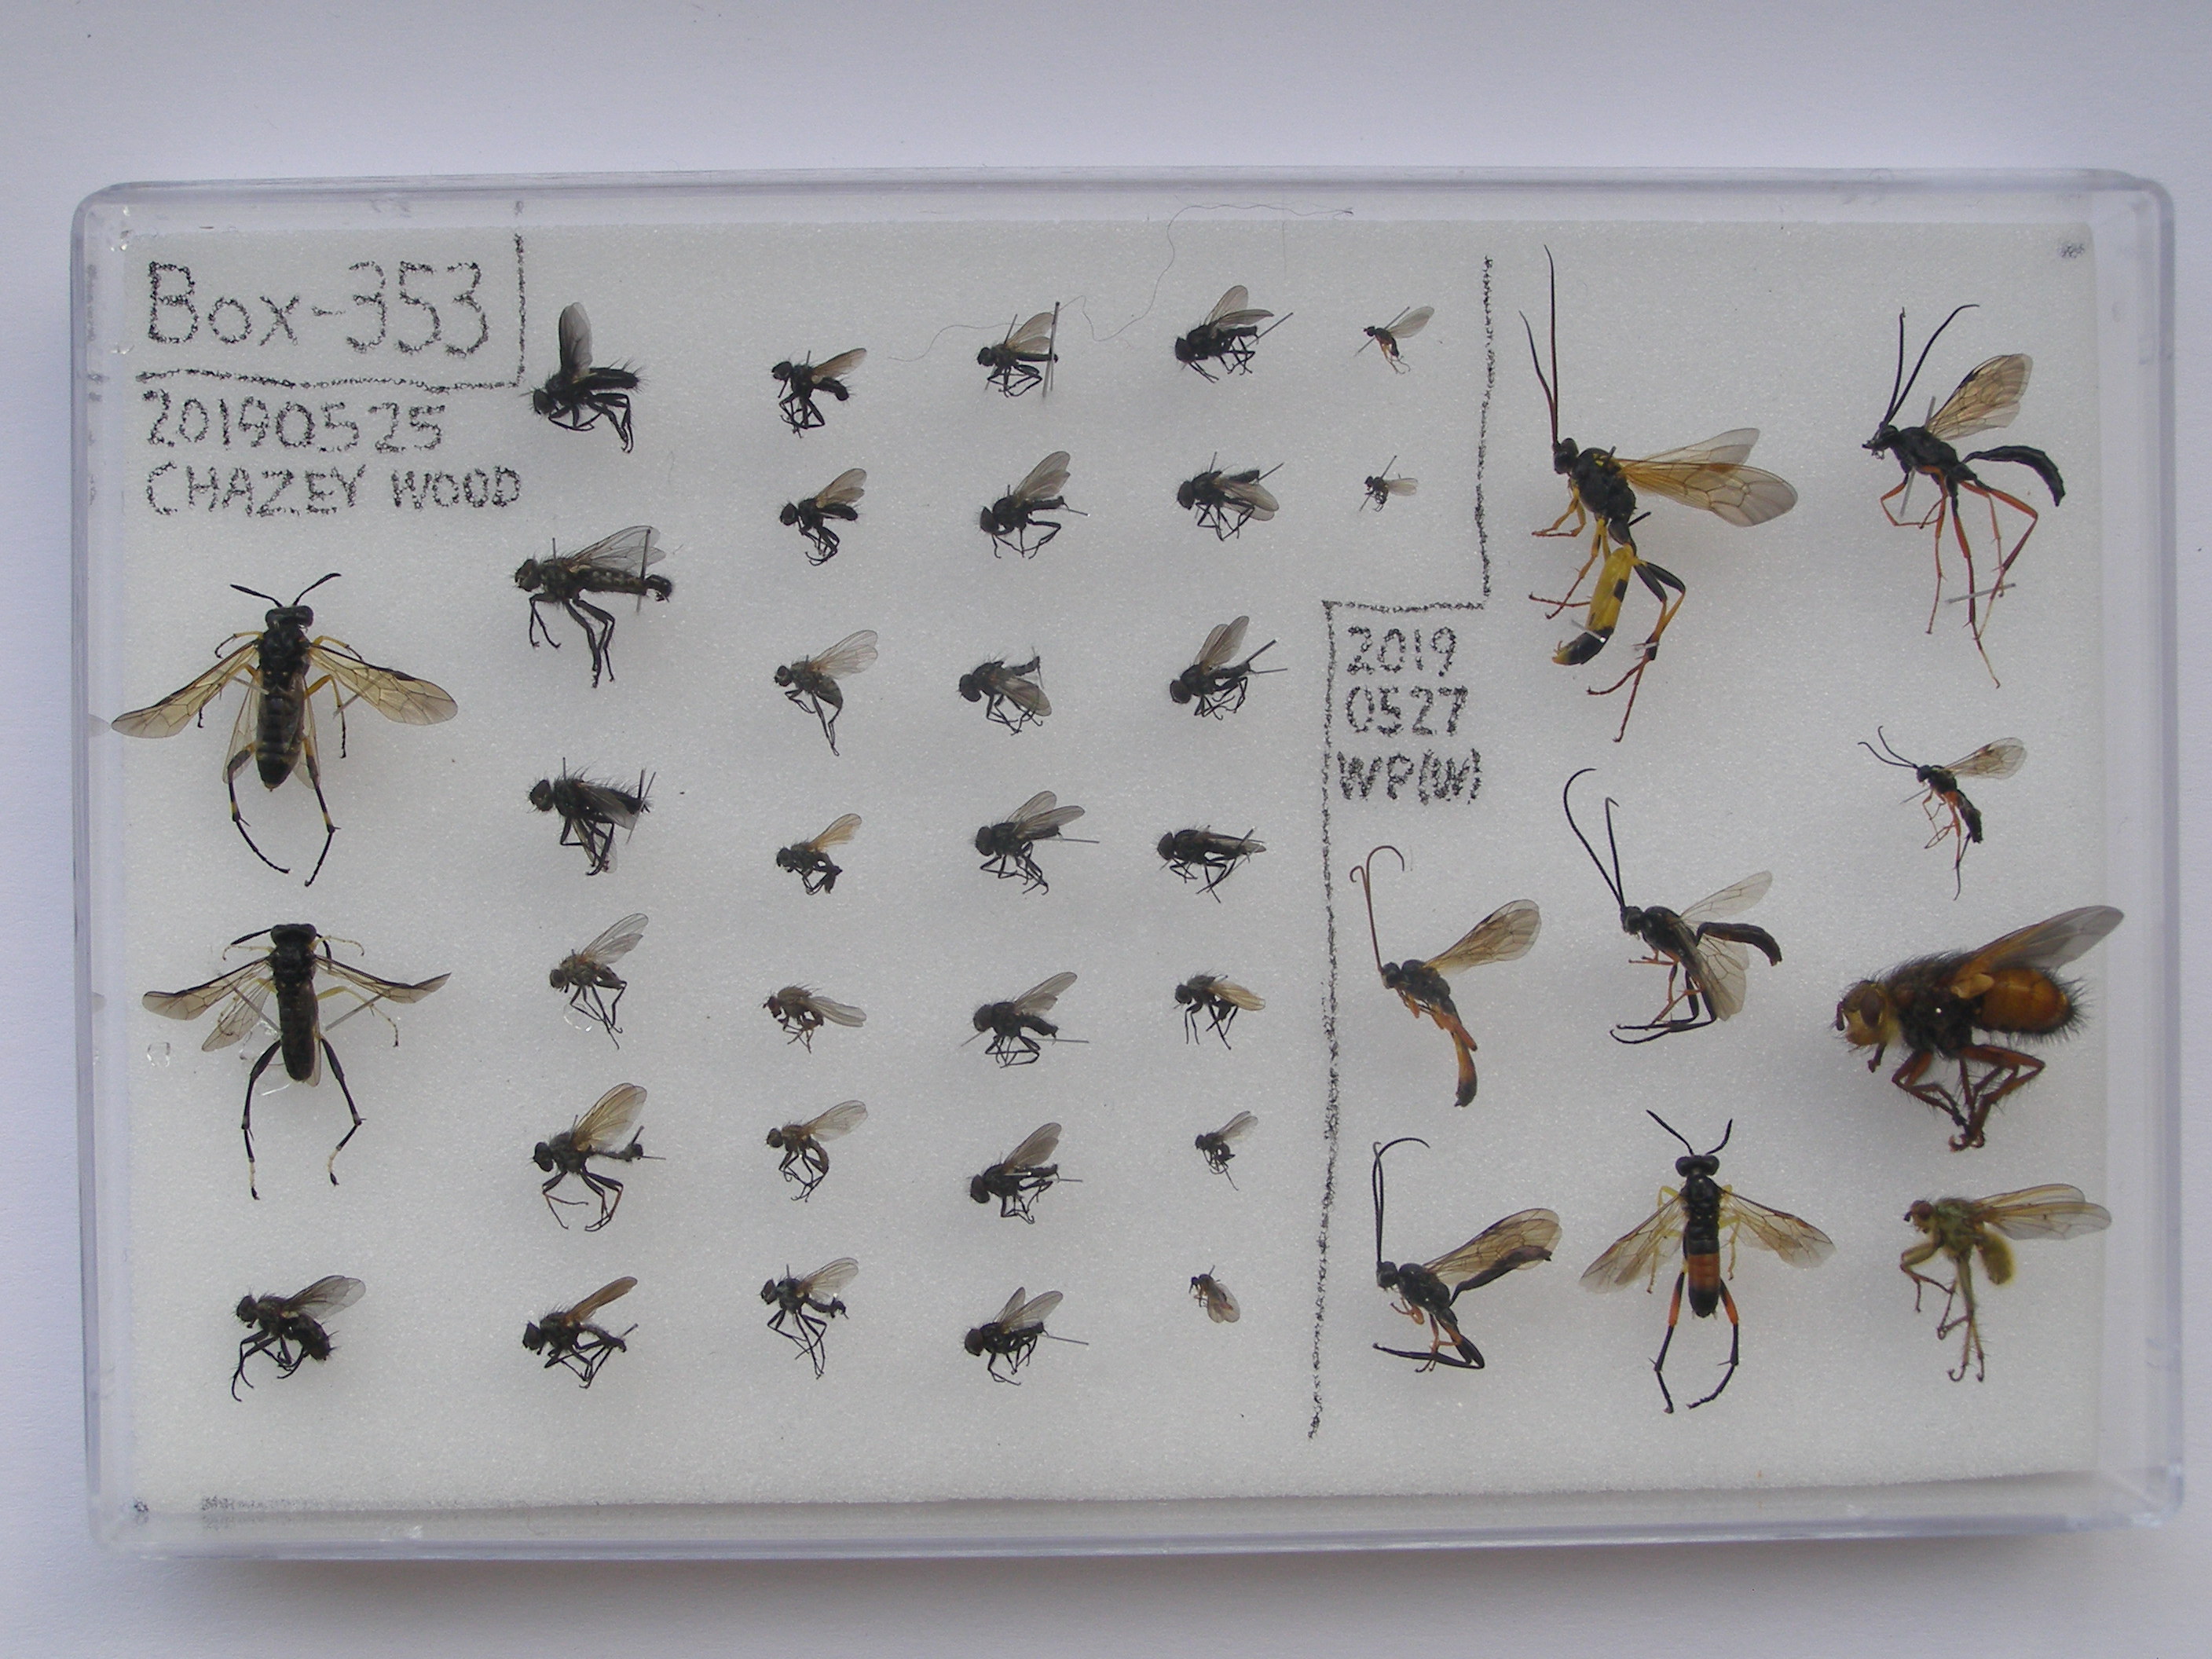 Box-353
20190525
CHAZEY WOOD
2019
0527